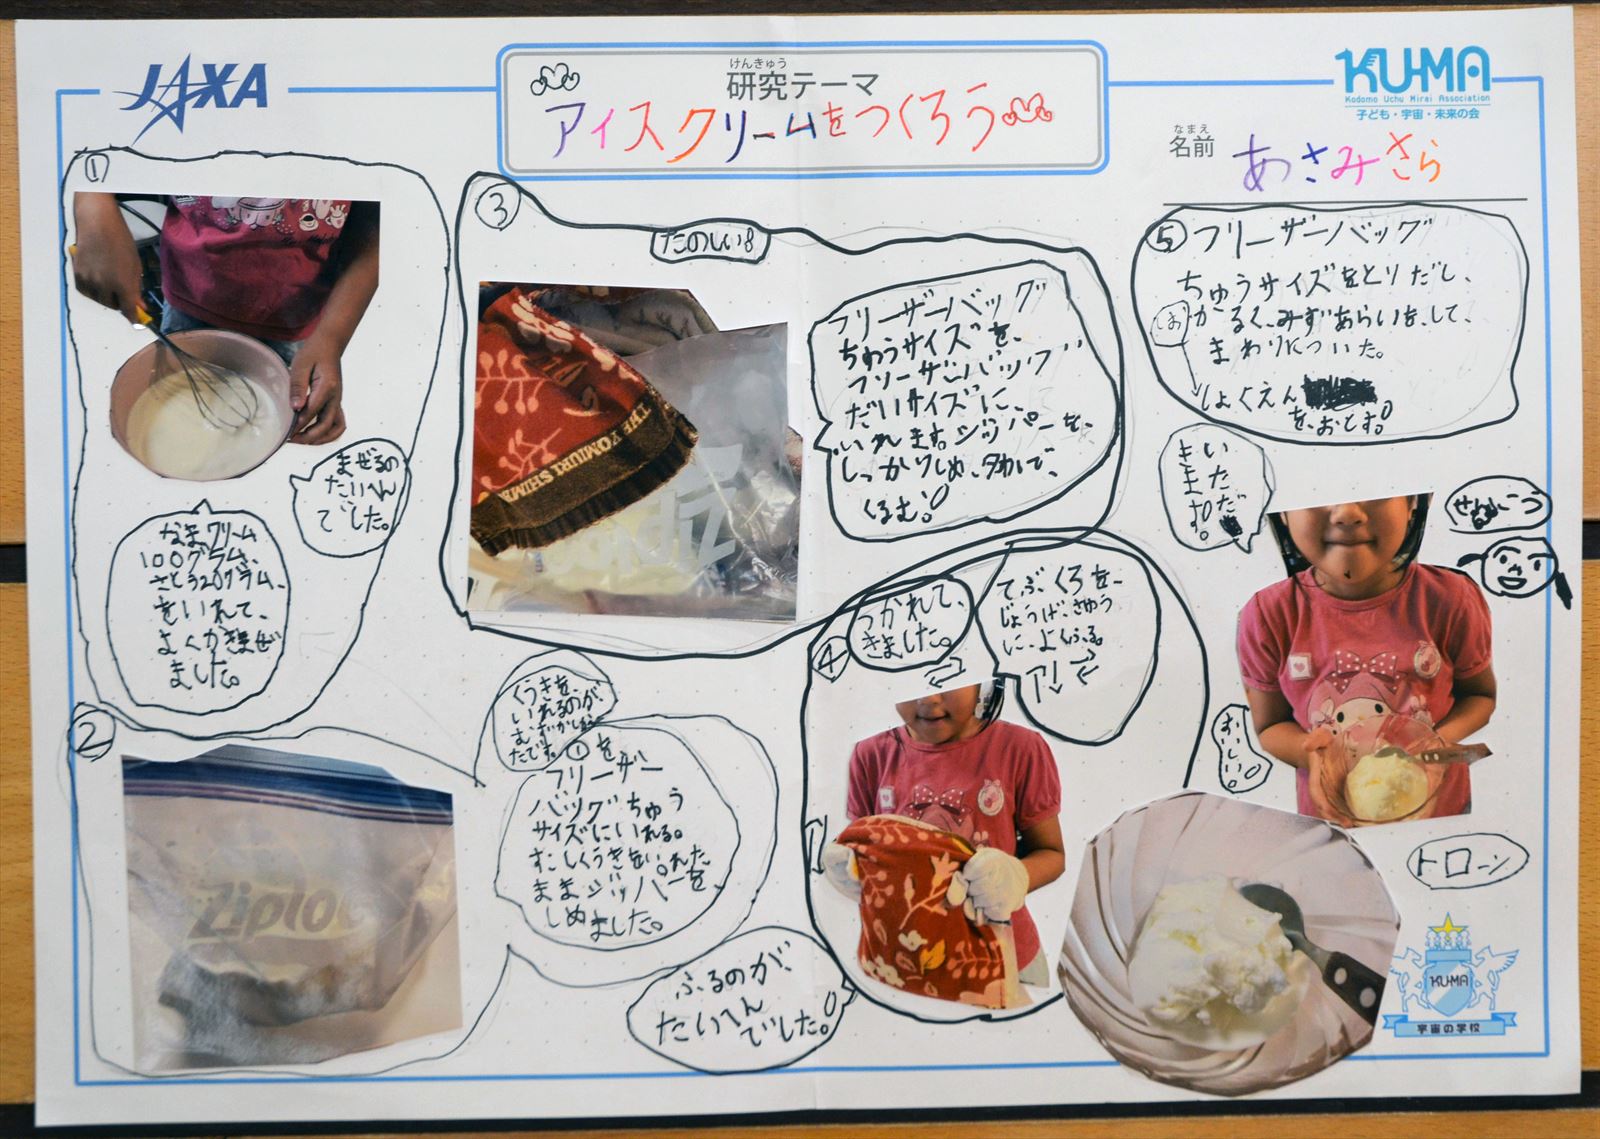 JAXA
けんきゅう
研究テーマ
アイスクリームをつくろう
KUMA
Kodomo Uchu Mirai Association
子ども・宇宙・未来の会
なまえ
名前
あさみさら
①
まぜるの
たいへん
でした。
なまクリーム
100グラム、
さとう20グラム、
をいれて、
よくかきまぜ
ました。
②
Ziploc
くうきを、
いれるのが、
むずかしかっ
たです。
①を
フリーザー
バッグちゅう
サイズにいれる。
すこしくうきをいれた
ままジッパーを
しめました。
③
たのしい
THE YOMIURI SHIMB
Ziploc
フリーザーバッグ
ちゅうサイズを、
フリーザーバッグ
だいサイズに、
いれます。ジッパーを、
しっかりしめ、タオルで、
くるむ。
④
つかれて、
きました。
てぶくろを、
じょうげ、さゆう
に、よくふる。
ふるのが、
たいへん
でした。
⑤フリーザーバッグ
ちゅうサイズをとりだし、
かるく、みずあらいを、して、
まわりについた。
しお
しょくえん
を、おとす。
いただ
きま
す。
おいしい。
トローン
KUMA
宇宙の学校